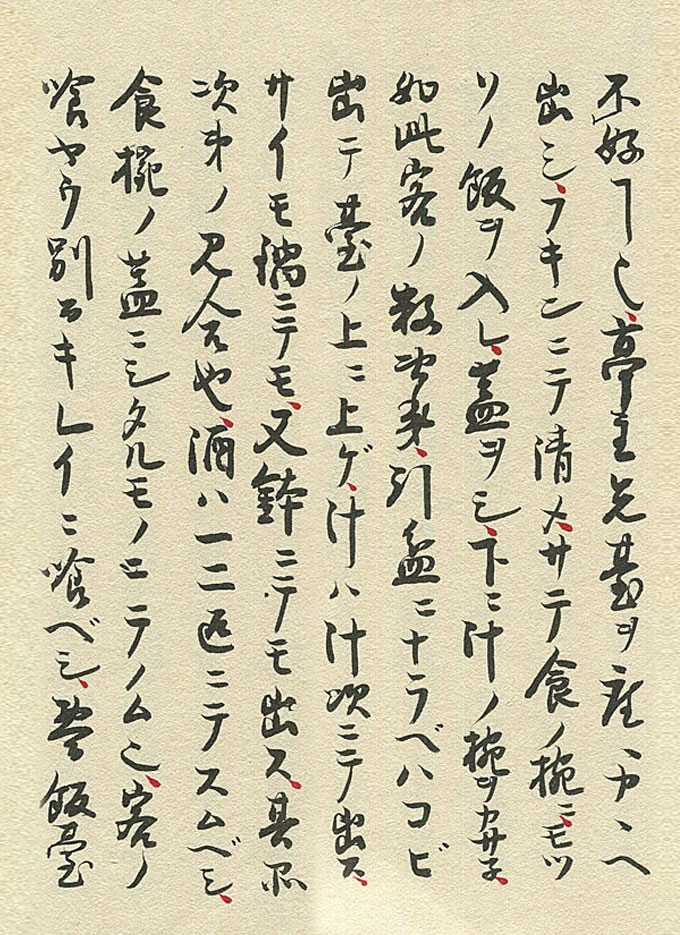 不好ヿ也、亭主先臺ヲ座ヘカヽヘ
出シ、フキンニテ清メ、サテ食ノ椀ニ、モツ
リノ飯ヲ入レ、蓋ヲシ、下ニ汁ノ椀ヲカサネ、
如此客ノ数次第、引盆ニナラベハコビ
出テ臺ノ上ニ上ゲ、汁ハ汁次ニテ出ス、
サイモ鍋ニテモ、又鉢ニテモ出ス、其品
次第ノ見合也、酒ハ一二返ニテスムベシ、
食椀ノ蓋ニシタルモノニテノム也、客ノ
喰ヤウ別而キレイニ喰ベシ、飯臺